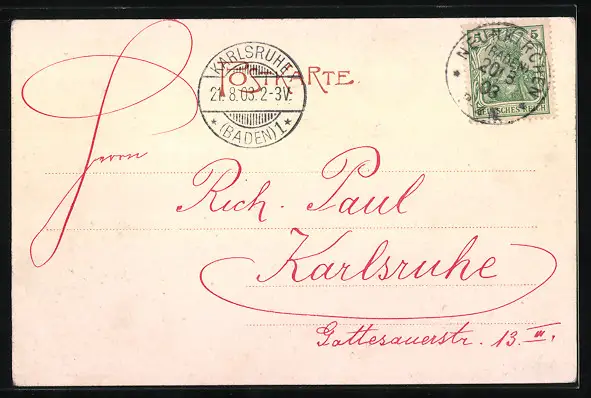 POSTKARTE
5
DEUTSCHES REICH
NEUNKIRCHEN
BADEN
20 8
03
KARLSRUHE
21.8.03.2-3V.
*(BADEN)1*
Herrn
Rich. Paul
Karlsruhe
Gottesauerstr. 13. III.